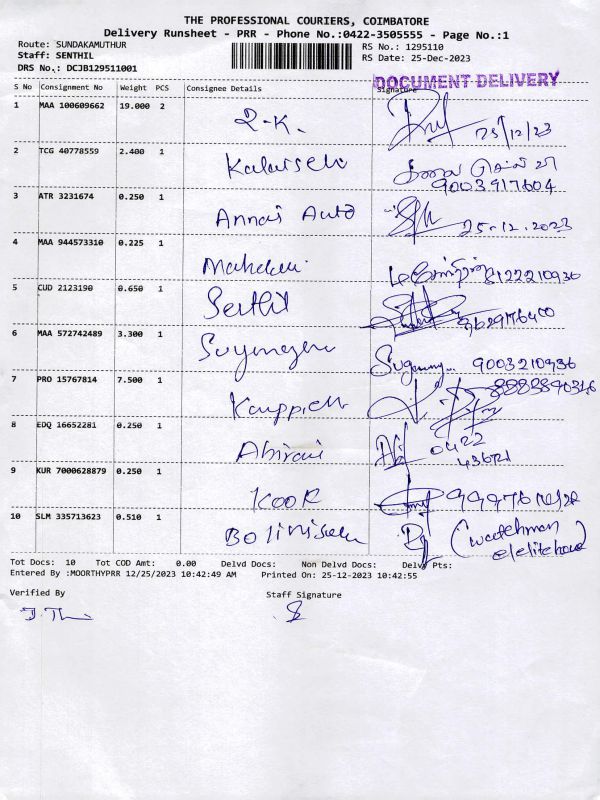 THE PROFESSIONAL COURIERS, COIMBATORE
Delivery Runsheet - PRR - Phone No.:0422-3505555 - Page No.:1
Route: SUNDAKAMUTHUR RS No.: 1295110
Staff: SENTHIL RS Date: 25-Dec-2023
DRS No.: DCJB129511001
DOCUMENT DELIVERY
S No Consignment No Weight PCS Consignee Details Signature
1 MAA 100609662 19.000 2 R.K. 25/12/23
2 TCG 40778559 2.400 1 Kalaiselvi கலை செல்வி
9003917604
3 ATR 3231674 0.250 1 Annai Auto 25.12.2023
4 MAA 944573310 0.225 1 8122210936
5 CUD 2123190 0.650 1 Senthil
6 MAA 572742489 3.300 1 9003210936
7 PRO 15767814 7.500 1
8 EDQ 16652281 0.250 1 Abirami 0422
9 KUR 7000628879 0.250 1 KOOR
10 SLM 335713623 0.510 1 (watchman
Tot Docs: 10 Tot COD Amt: 0.00 Delvd Docs: Non Delvd Docs: Delvy Pts:
Entered By :MOORTHYPRR 12/25/2023 10:42:49 AM Printed On: 25-12-2023 10:42:55
Verified By Staff Signature